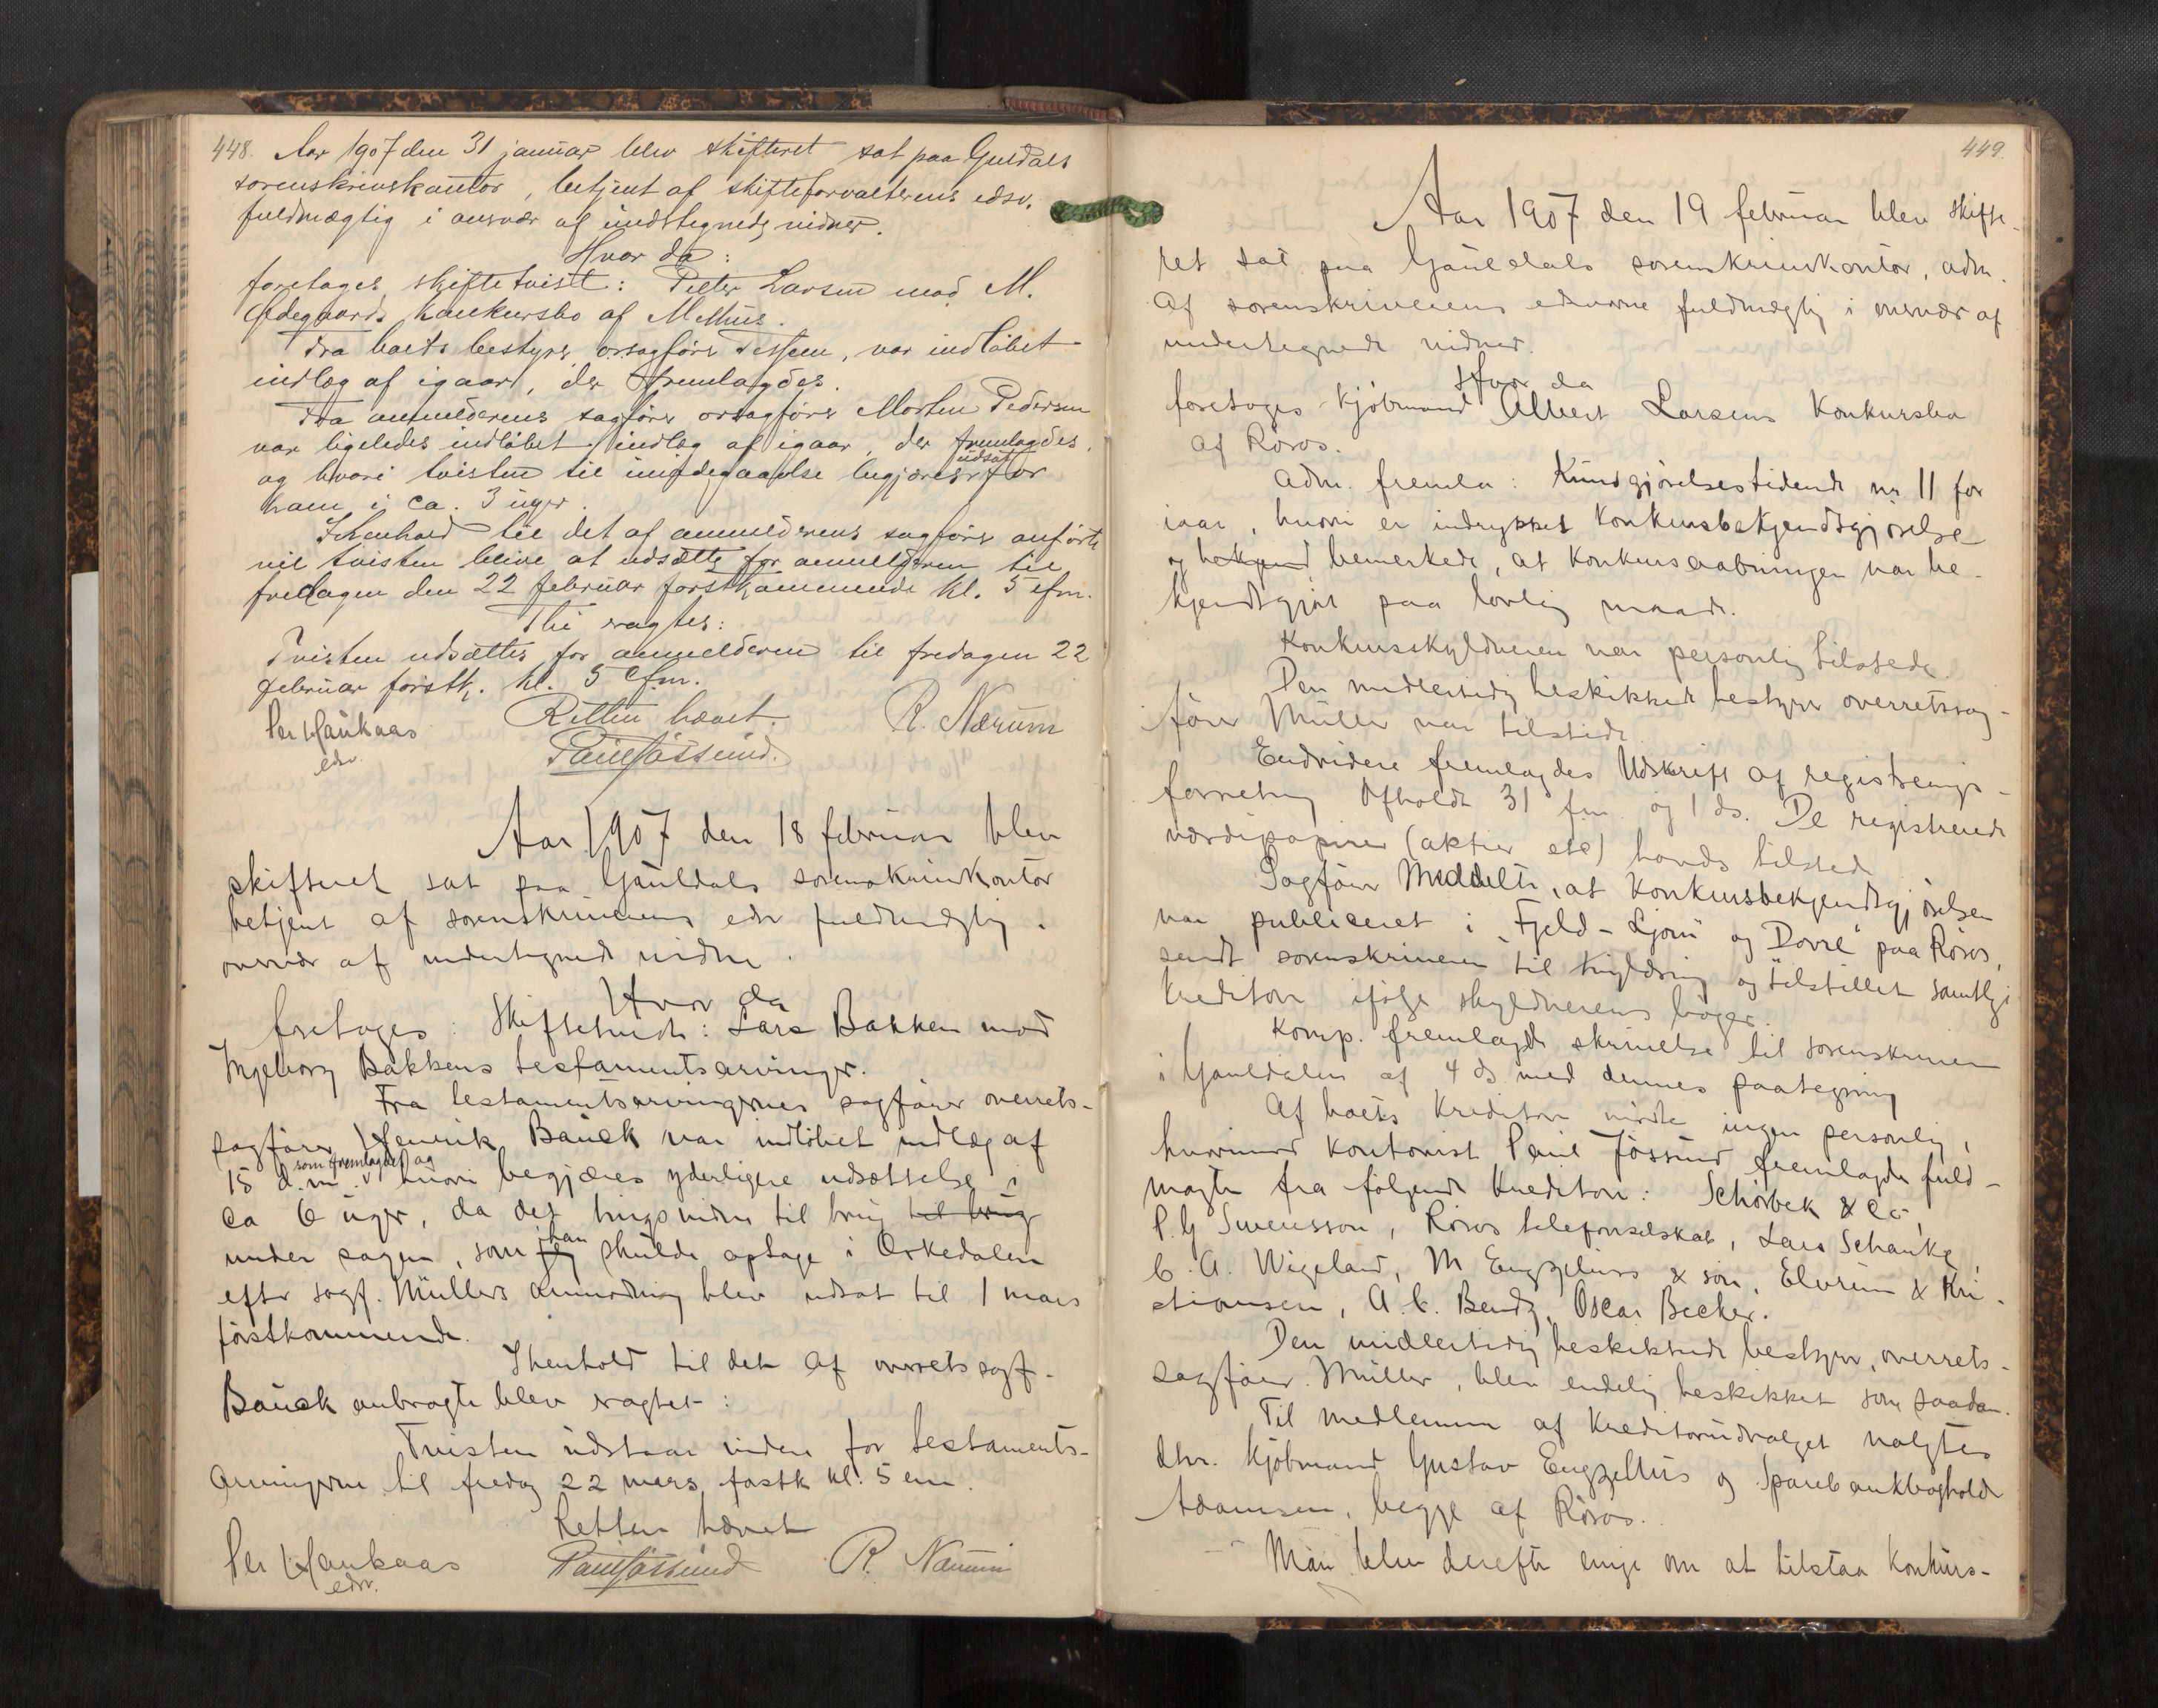 448. Aar 1907 den 31 januar blev skifteret sat paa Guldals
sorenskriverkontor, betjent af skifteforvalterens edsv.
fuldmægtig i overvær af undertegnede vidner.
Hvor da:
foretages skiftetvist: Peter Larsen mod M.
Ødegaards konkursbo af Melhus.
Fra boets bestyrer, orsagfører Tessem, var indløbet
indlæg af igaar, der fremlagdes.
Fra anmelderens sagfører orsagfører Morten Pedersen
var ligeledes indløbet indlæg af igaar, der fremlagdes,
og hvori tvisten til imødegaaelse begjæres udsat for
ham i ca. 3 uger.
I henhold til det af anmelderens sagfører anførte
vil tvisten blive at udsætte for anmelderen til
fredagen den 22 februar førstkommende kl. 5 efm.
Thi ragtes:
Tvisten udsættes for anmelderen til fredagen 22
februar førstk. kl. 5 efm.
Retten hævet.
Per Haukaas R. Nærum
edsv. Paul Jössund.
Aar 1907 den 18 februar blev
skifteret sat paa Gauldals sorenskriverkontor
betjent af sorenskriverens edsv fuldmægtig i
overvær af undertegnede vidner.
Hvor da
foretages: Skiftetvist: Lars Bakken mod
Ingeborg Bakkens testamentsarvinger.
Fra testamentsarvingernes sagfører overrets-
sagfører Henrik Bauck var indløbet indlæg af
15 d.m. som fremlagdes og hvori begjæres yderligere udsættelse i
ca 6 uger, da det tingsvidne til brug til brug
under sagen, som jeg han skulde optage i Orkedalen
efter sagf. Müllers anmodning blev udsat til 1 mars
førstkommende.
I henhold til det af overretssagf.
Bauck anbragte blev ragtet:
Tvisten udstaar videre for testaments-
arvingerne til fredag 22 mars førstk kl. 5 em.
Retten hævet
Per Haukaas Paul Jössund R. Nærum
edsv.
449.
Aar 1907 den 19 februar blev skifte-
ret sat paa Gauldals sorenskriverkontor, adm.
af sorenskriverens edsvorne fuldmægtig i overvær af
undertegnede vidner.
Hvor da
foretoges kjøbmand Albert Larsens konkursbo
af Røros.
Adm. fremla: Kundgjørelsestidende nr. 11 for
iaar, hvori er indrykket konkursbekjendtgjørelse
og bekjend bemerkede, at konkursaabningen var be-
kjendtgjort paa lovlig maade.
Konkursskyldneren var personlig tilstede.
Den midlertidig beskikkede bestyrer overretssag-
fører Müller var tilstede.
Endvidere fremlagdes Udskrift af registrerings-
forretning afholdt 31 f.m. og 1 ds. De registrerede
værdipapirer (aktier etc) havdes tilstede
Sagfører Meddelte, at konkursbekjendtgjørelsen
var publiceret i "Fjeld-Ljom" og "Dovre" paa Røros,
sendt sorenskriveren til tinglysning og tilstillet samtlige
kreditorer ifølge skyldnerens bøger.
Komp. fremlagde skrivelse til sorenskriveren
i Gauldalen af 4 ds med dennes paategning
Af boets kreditorer mødte ingen personlig,
hvorimod kontorist Paul Jössund fremlagde fuld-
magter fra følgende kreditorer: Schørbek & Co,
P. G Svensson, Røros telefonselskab, Lars Schanke,
C. A. Wigeland, M Engzelius & søn, Elvrum & Kri-
stiansen, A. C. Bendz, Oscar Becker.
Den midlertidig beskikkede bestyrer, overrets-
sagfører Müller, blev endelig beskikket som saadan.
Til medlemmer af kreditorudvalget valgtes
dhr. kjøbmand Gustav Engzelius og sparebankbogholder
Adamsen, begge af Røros.
Man blev derefter enige om at tilstaa konkurs-